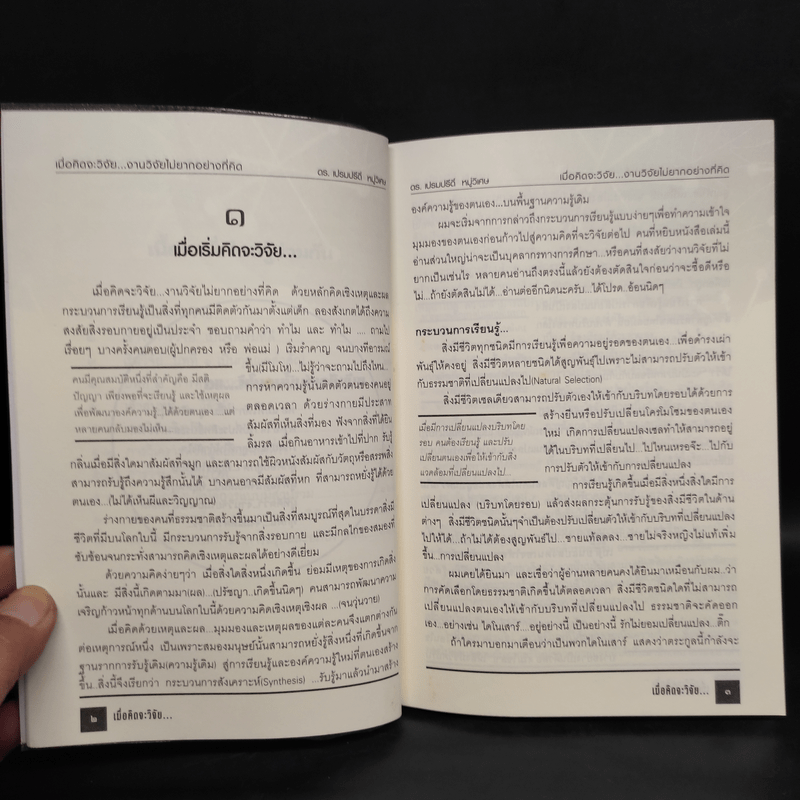 เมื่อคิดจะวิจัย...งานวิจัยไม่ยากอย่างที่คิด
ดร. เปรมปรีดี หมู่วิเศษ
๑
เมื่อเริ่มคิดจะวิจัย...
เมื่อคิดจะวิจัย...งานวิจัยไม่ยากอย่างที่คิด ด้วยหลักคิดเชิงเหตุและผล
กระบวนการเรียนรู้เป็นสิ่งที่ทุกคนมีติดตัวกันมาตั้งแต่เด็ก ลองสังเกตได้ถึงความ
สงสัยสิ่งรอบกายอยู่เป็นประจำ ชอบถามคำว่า ทำไม และ ทำไม .... ถามไป
เรื่อยๆ บางครั้งคนตอบ(ผู้ปกครอง หรือ พ่อแม่ ) เริ่มรำคาญ จนบางทีอารมณ์
ขึ้น(มีโมโห)...ไม่รู้ว่าจะถามไปถึงไหน...
การหาความรู้นั้นติดตัวตนของคนอยู่
ตลอดเวลา ด้วยร่างกายมีประสาท
สัมผัสที่เห็นสิ่งที่มอง ฟังจากสิ่งที่ได้ยิน
ลิ้มรส เมื่อกินอาหารเข้าไปที่ปาก รับรู้
คนมีคุณสมบัติหนึ่งที่สำคัญคือ มีสติ
ปัญญา เพียงพอที่จะเรียนรู้ และใช้เหตุผล
เพื่อพัฒนาองค์ความรู้..ได้ด้วยตนเอง ...แต่
หลายคนกลับมองไม่เห็น...
กลิ่นเมื่อมีสิ่งใดมาสัมผัสที่จมูก และสามารถใช้ผิวหนังสัมผัสกับวัตถุหรือสรรพสิ่ง
สามารถรับรู้ถึงความรู้สึกนั้นได้ บางคนอาจมีสัมผัสที่หก ที่สามารถหยั่งรู้ได้ด้วย
ตนเอง...(ไม่ได้เห็นผีและวิญญาณ)
ร่างกายของคนที่ธรรมชาติสร้างขึ้นมาเป็นสิ่งที่สมบูรณ์ที่สุดในบรรดาสิ่งมี
ชีวิตที่มีบนโลกใบนี้ มีกระบวนการรับรู้จากสิ่งรอบกาย และมีกลไกของสมองที่
ซับซ้อนจนกระทั่งสามารถคิดเชิงเหตุและผลได้อย่างดีเยี่ยม
ด้วยความคิดง่ายๆว่า เมื่อสิ่งใดสิ่งหนึ่งเกิดขึ้น ย่อมมีเหตุของการเกิดสิ่ง
นั้นและ มีสิ่งนี้เกิดตามมา(ผล)...(ปรัชญา..เกิดขึ้นนิดๆ) คนสามารถพัฒนาความ
เจริญก้าวหน้าทุกด้านบนโลกใบนี้ด้วยความคิดเชิงเหตุเชิงผล ...(จนวุ่นวาย)
เมื่อคิดด้วยเหตุและผล...มุมมองและเหตุผลของแต่ละคนจึงแตกต่างกัน
ต่อเหตุการณ์หนึ่ง เป็นเพราะสมองมนุษย์นั้นสามารถหยั่งรู้สิ่งที่เกิดขึ้นจาก
ฐานรากการรับรู้เดิม(ความรู้เดิม) สู่การเรียนรู้และองค์ความรู้ใหม่ที่ตนเองสร้าง
ขึ้น..สิ่งนี้จึงเรียกว่า กระบวนการสังเคราะห์(Synthesis) ...รับรู้มาแล้วนำมาสร้าง
๒ เมื่อคิดจะวิจัย...
ดร. เปรมปรีดี หมู่วิเศษ
เมื่อคิดจะวิจัย...งานวิจัยไม่ยากอย่างที่คิด
องค์ความรู้ของตนเอง...บนพื้นฐานความรู้เดิม
ผมจะเริ่มจากการกล่าวถึงกระบวนการเรียนรู้แบบง่ายๆเพื่อทำความเข้าใจ
มุมมองของตนเองก่อนก้าวไปสู่ความคิดที่จะวิจัยต่อไป คนที่หยิบหนังสือเล่มนี้
อ่านส่วนใหญ่น่าจะเป็นบุคลากรทางการศึกษา...หรือคนที่สงสัยว่างานวิจัยที่ไม่
ยากเป็นเช่นไร หลายคนอ่านถึงตรงนี้แล้วยังต้องตัดสินใจก่อนว่าจะซื้อดีหรือ
ไม่...ถ้ายังตัดสินไม่ได้...อ่านต่ออีกนิดนะครับ...ได้โปรด..อ้อนนิดๆ
กระบวนการเรียนรู้...
สิ่งมีชีวิตทุกชนิดมีการเรียนรู้เพื่อความอยู่รอดของตนเอง...เพื่อดำรงเผ่า
พันธุ์ให้คงอยู่ สิ่งมีชีวิตหลายชนิดได้สูญพันธุ์ไปเพราะไม่สามารถปรับตัวให้เข้า
กับธรรมชาติที่เปลี่ยนแปลงไป(Natural Selection)
สิ่งมีชีวิตเซลเดียวสามารถปรับตัวเองให้เข้ากับบริบทโดยรอบได้ด้วยการ
สร้างยีนหรือปรับเปลี่ยนโครโมโซมของตนเอง
ใหม่ เกิดการเปลี่ยนแปลงเซลทำให้สามารถอยู่
ได้ในบริบทที่เปลี่ยนไป ...ไปไหนเหรอจ๊ะ.... ไปกับ
การปรับตัวให้เข้ากับการเปลี่ยนแปลง
เมื่อมีการเปลี่ยนแปลงบริบทโดย
รอบ คนต้องเรียนรู้ และปรับ
เปลี่ยนตนเองเพื่อให้เข้ากับสิ่ง
แวดล้อมที่เปลี่ยนแปลงไป...
การเรียนรู้เกิดขึ้นเมื่อมีสิ่งหนึ่งสิ่งใดมีการ
เปลี่ยนแปลง (บริบทโดยรอบ) แล้วส่งผลกระตุ้นการรับรู้ของสิ่งมีชีวิตในด้าน
ต่างๆ สิ่งมีชีวิตชนิดนั้นๆจำเป็นต้องปรับเปลี่ยนตัวให้เข้ากับบริบทที่เปลี่ยนแปลง
ไปให้ได้...ถ้าไม่ได้ต้องสูญไป...ชายแท้ลดลง...ชายไม่จริงหญิงไม่แท้เพิ่ม
ขึ้น....การเปลี่ยนแปลง
ผมเคยได้ยินมา และเชื่อว่าผู้อ่านหลายคนคงได้ยินมาเหมือนกับผม..ว่า
การคัดเลือกโดยธรรมชาติเกิดขึ้นได้ตลอดเวลา สิ่งมีชีวิตชนิดใดที่ไม่สามารถ
เปลี่ยนแปลงตนเองให้เข้ากับบริบทที่เปลี่ยนแปลงไป ธรรมชาติจะคัดออก
เอง...อย่างเช่น ไดโนเสาร์...อยู่อย่างนี้ เป็นอย่างนี้ รักไม่ยอมเปลี่ยนแปลง...ติ๊ก
ถ้าใครมาบอกมาเตือนว่าเป็นพวกไดโนเสาร์ แสดงว่าตระกูลนี้กำลังจะ
เมื่อคิดจะวิจัย... ๓